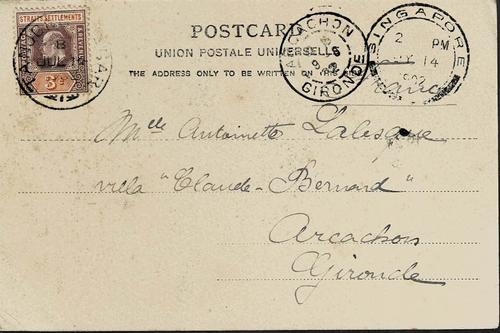 STRAITS SETTLEMENTS
3c
JUL
POSTCARD
UNION POSTALE UNIVERSELLE
THE ADDRESS ONLY TO BE WRITTEN ON THIS
ARCACHON
GIRONDE
SINGAPORE
2 PM
14
Mlle Antoinette Lalesque
villa "Claude-Bernard"
Arcachon
Gironde